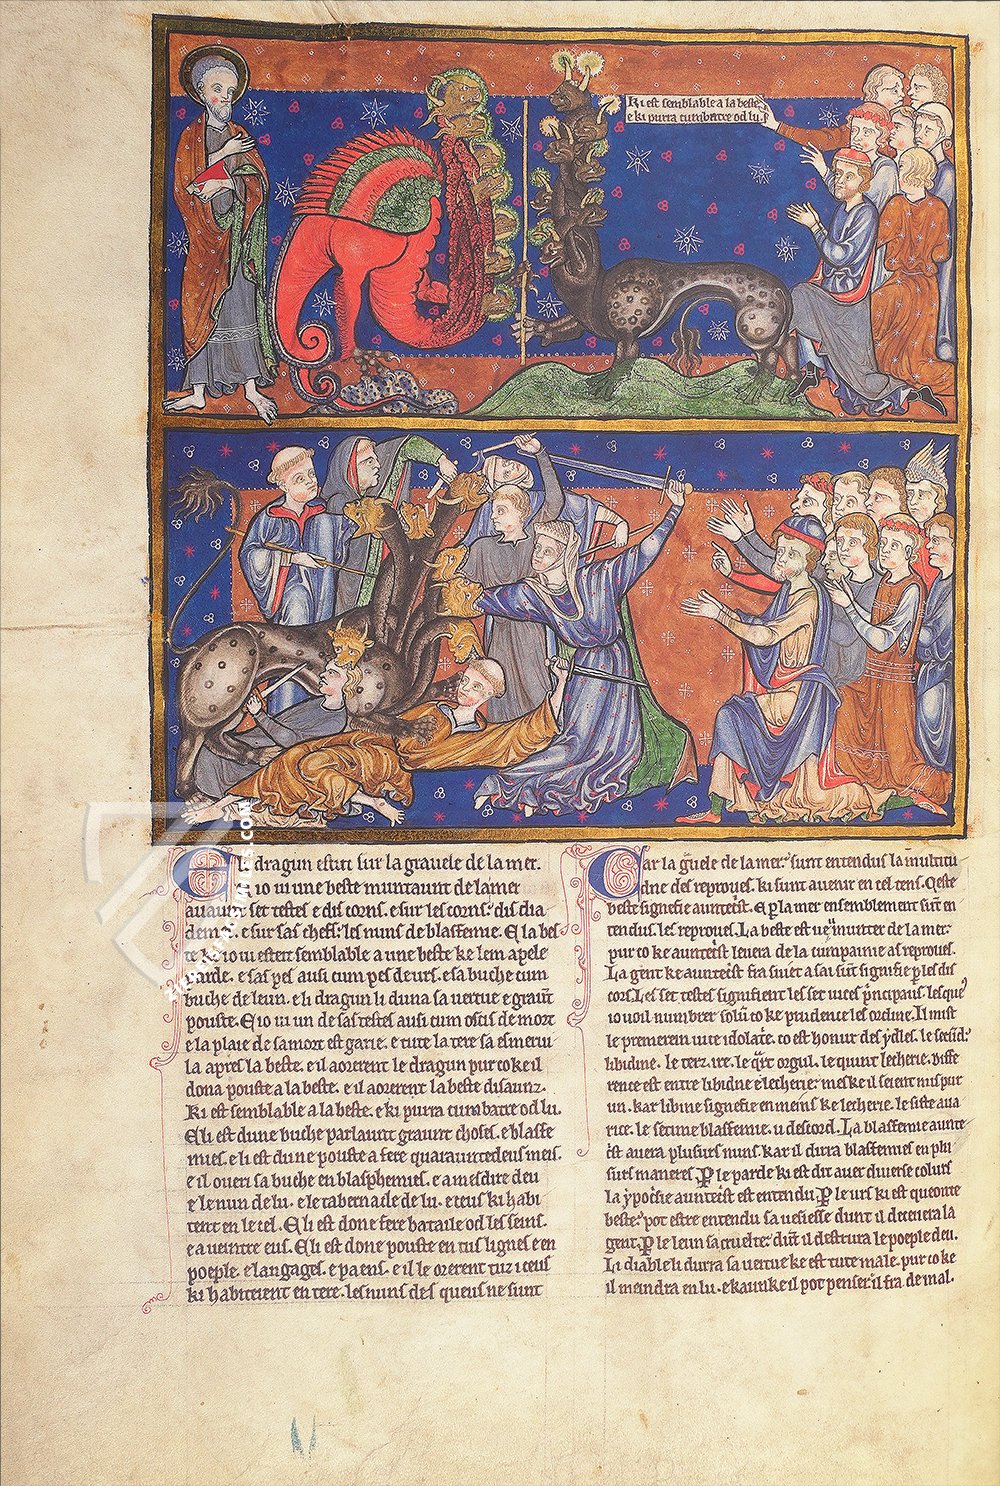 Ki est semblable a la beste.
e ki purra cumbatre od lu.
El dragun estut sur la gravele de la mer.
io vi une beste muntaunt de la mer
avaunt set testes e dis corns. e sur les corns. dis dia
dem e sur sas chefs. les nuns de blasfemie. E la bes
te ke io vi esteit semblable a une beste ke lem apele
parde. e sas pes ausi cum pes de urs. e sa buche cum
buche de leun. e li dragun li duna sa vertue e graunt
pouste. E io vi un de sas testes ausi cum oscis de mort
e la plaie de sa mort est garie. e tute la tere sa esmeru
la apres la beste. e il aorerent le dragun pur co ke il
dona pouste a la beste. e il aorerent la beste disaunz.
Ki est semblable a la beste. e ki purra cumbatre od lu.
E li est dune buche parlaunt graunt choses. e blasfe
mies. e li est dune pouste a fere quaraunte deus meis.
e il overi sa buche en blasphemies. e a mesdire deu
e le nun de lu. e le tabernacle de lu. e ceus ki habi
tent en le ciel. E li est done fere bataile od les seins.
e a veintre eus. E li est done pouste en tus lignes e en
poeple. e langages. e paens. e il le orerent tuz iceus
ki habiteient en tere. les nuns des queus ne sunt
Par la gravele de la mer. sunt entendus la multitu
dne des reproves. ki sunt a venir en cel tens. Ceste
beste signefie auntecrist. E par la mer ensemblement sunt en
tendus. les reproves. La beste est veu munter de la mer.
pur co ke auntecrist levera de la cumpainie as reproves.
La gent ke auntecrist fra suiet a sai sunt signifie par les dis
cors. Les set testes signifient les set vices principaus les que
io voil numbrer solum co ke prudence les ordine. Il mist
le premerein vice idolatrie. co est honur des ydles. le secund.
libidine. le terz. ire. le quart orgul. le quint lecherie. Diffe
rence est entre libidne e lecherie. mes ke il seient mis pur
un. kar libine signefie en meins ke lecherie. le siste ava
rice. le setime blasfemie. u descord. La blasfemie aunte
crist avera plusurs nuns. kar il durra blasfemies en plu
surs maneres. Par le parde ki est dit aver diverse colurs
la ypocrisie auntecrist est entendu. Par le urs ki est queonte
beste. pot estre entendu sa vesiesse dunt il decevera la
gent. Par le leun sa cruelte. dunt il destrura le poeple deu.
Li diable li durra sa vertue ke est tute male. pur co ke
il meindra en lu. e kaunke il pot penser il fra de mal.